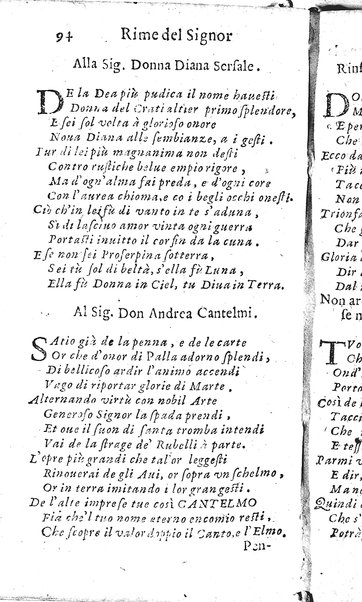 94 Rime del Signor
Alla Sig. Donna Diana Sersale.
DE la Dea più pudica il nome havesti
Donna del Crati altier primo splendore,
E sei sol volta à glorioso onore
Nova Diana alle sembianze, a i gesti.
Pur di lei più magnanima non desti
Contro rustiche belue empio rigore,
Ma d'ogn'alma fai preda, e d'ogni core
Con l'aurea chioma, e co i begli occhi onesti.
Ciò ch'in lei fù di vanto in te s'aduna,
Sì di lascivo amor vinta ogni guerra
Portasti invitto il cor fin da la cuna.
E se non sei Proserpina sotterra,
Sei tù sol di beltà, s'ella fù Luna,
Ella fù Donna in Ciel, tu Diva in Terra.
Al Sig. Don Andrea Cantelmi.
SAtio già de la penna, e de le carte
Or che d'onor di Palla adorno splendi,
Di bellicoso ardir l'animo accendi
Vago di riportar glorie di Marte.
Alternando virtù con nobil Arte
Generoso Signor la spada prendi,
Et oue il suon di santa tromba intendi
Vai de la strage de' Rubelli à parte.
L'opre più grandi che tal'or leggesti
Rinouerai de gli Aui, or sopra vn schelmo,
Or in terra imitando i lor gran gesti.
De l'alte imprese tue così CANTELMO
Fia che'l tuo nome eterno encomio resti,
Che scopre il valor doppio il Canto, e l'Elmo.
Pen-